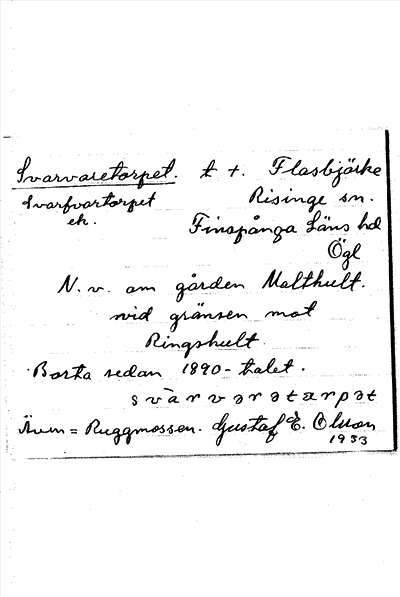 Svarvaretorpet. t t. Flasbjörke
Svarfvartorpet Risinge sn.
ek. Finspånga Läns hd
Ögl
N. v. om gården Malthult.
vid gränsen mot
Ringshult
Borta sedan 1890-talet.
svàrvərətærpət
Även = Ruggmossen. Gustaf E. Olsson
1933